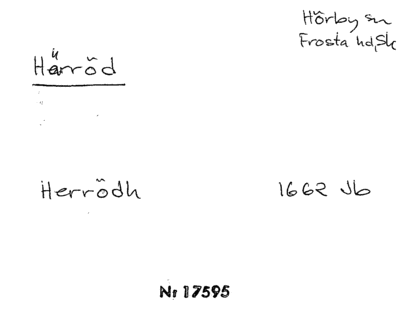 Hörby sn
Frosta hd, Sk
Härröd
Herrödh 1662 Jb
Nr 17595